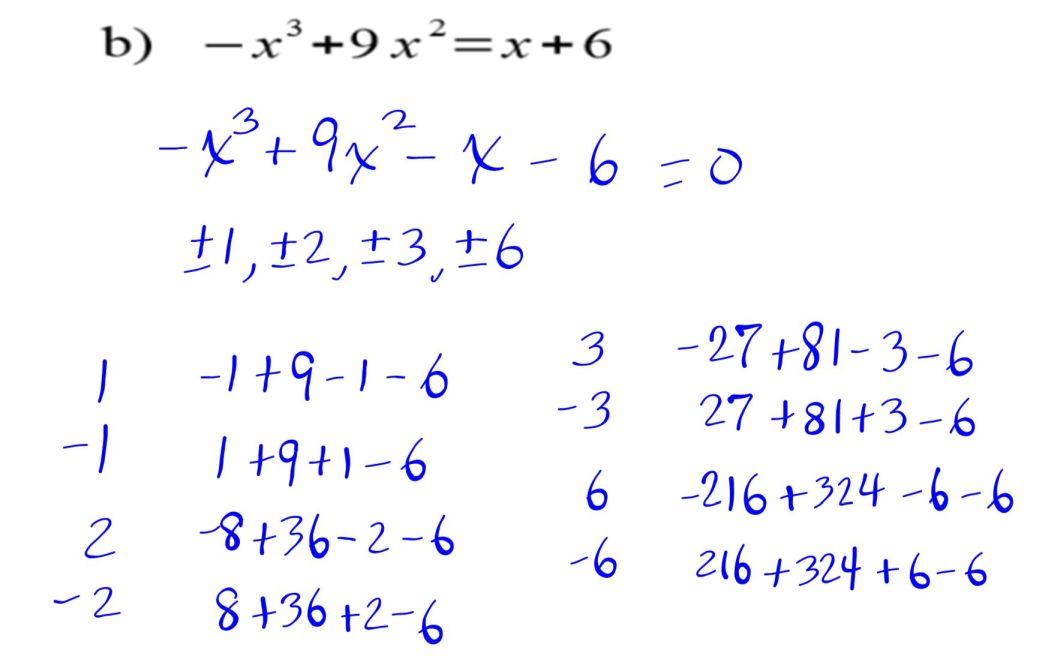 b) −x³+9x²=x+6
-x³+9x²-x-6=0
±1, ±2, ±3, ±6
1 -1+9-1-6
-1 1+9+1-6
2 -8+36-2-6
-2 8+36+2-6
3 -27+81-3-6
-3 27+81+3-6
6 -216+324-6-6
-6 216+324+6-6